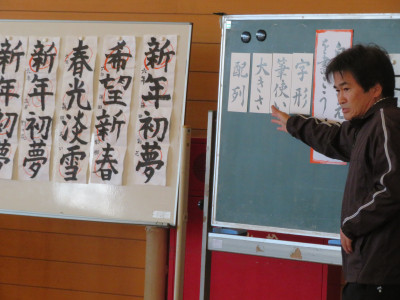 新年初夢
希望新春
春光淡雪
新年初夢
新年
字形
筆使い
大きさ
配列